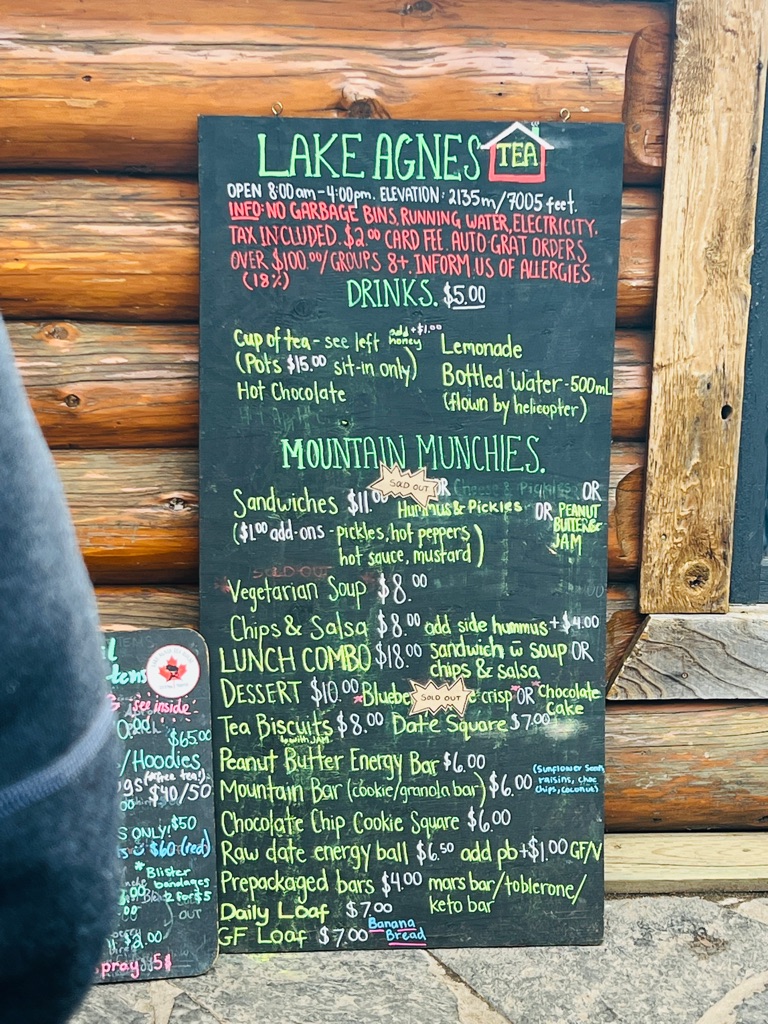 LAKE AGNES TEA
OPEN 8:00am-4:00pm. ELEVATION: 2135m/7005 feet.
INFO: NO GARBAGE BINS, RUNNING WATER, ELECTRICITY.
TAX INCLUDED. $2.00 CARD FEE. AUTO-GRAT ORDERS
OVER $100.00/GROUPS 8+. INFORM US OF ALLERGIES.
(18%)
DRINKS. $5.00
Cup of tea - see left add honey +$1.00
(Pots $15.00 sit-in only)
Hot Chocolate
Lemonade
Bottled Water - 500mL
(flown by helicopter)
MOUNTAIN MUNCHIES.
Sandwiches $11.00 SOLD OUT OR Cheese & Pickles OR
Hummus & Pickles OR PEANUT
BUTTER &
JAM
($1.00 add-ons - pickles, hot peppers
hot sauce, mustard)
SOLD OUT
Vegetarian Soup $8.00
Chips & Salsa $8.00 add side hummus +$4.00
LUNCH COMBO $18.00 sandwich w̄ soup OR
chips & salsa
DESSERT $10.00 *Bluebe SOLD OUT crisp* OR *Chocolate
Cake
Tea Biscuits $8.00 Date Square $7.00
with JAM
Peanut Butter Energy Bar $6.00
Mountain Bar (cookie/granola bar) $6.00 (sunflower seeds
raisins, choc
chips, coconut)
Chocolate Chip Cookie Square $6.00
Raw date energy ball $6.50 add pb +$1.00 GF/V
Prepackaged bars $4.00 mars bar/toblerone/
keto bar
Daily Loaf $7.00
GF Loaf $7.00 Banana
Bread
see inside
$65.00
/Hoodies
(free tea!)
$40/50
S ONLY! $50
$60 (red)
*Blister
bandages
2 for $5
OUT
$2.00
pray 5¢